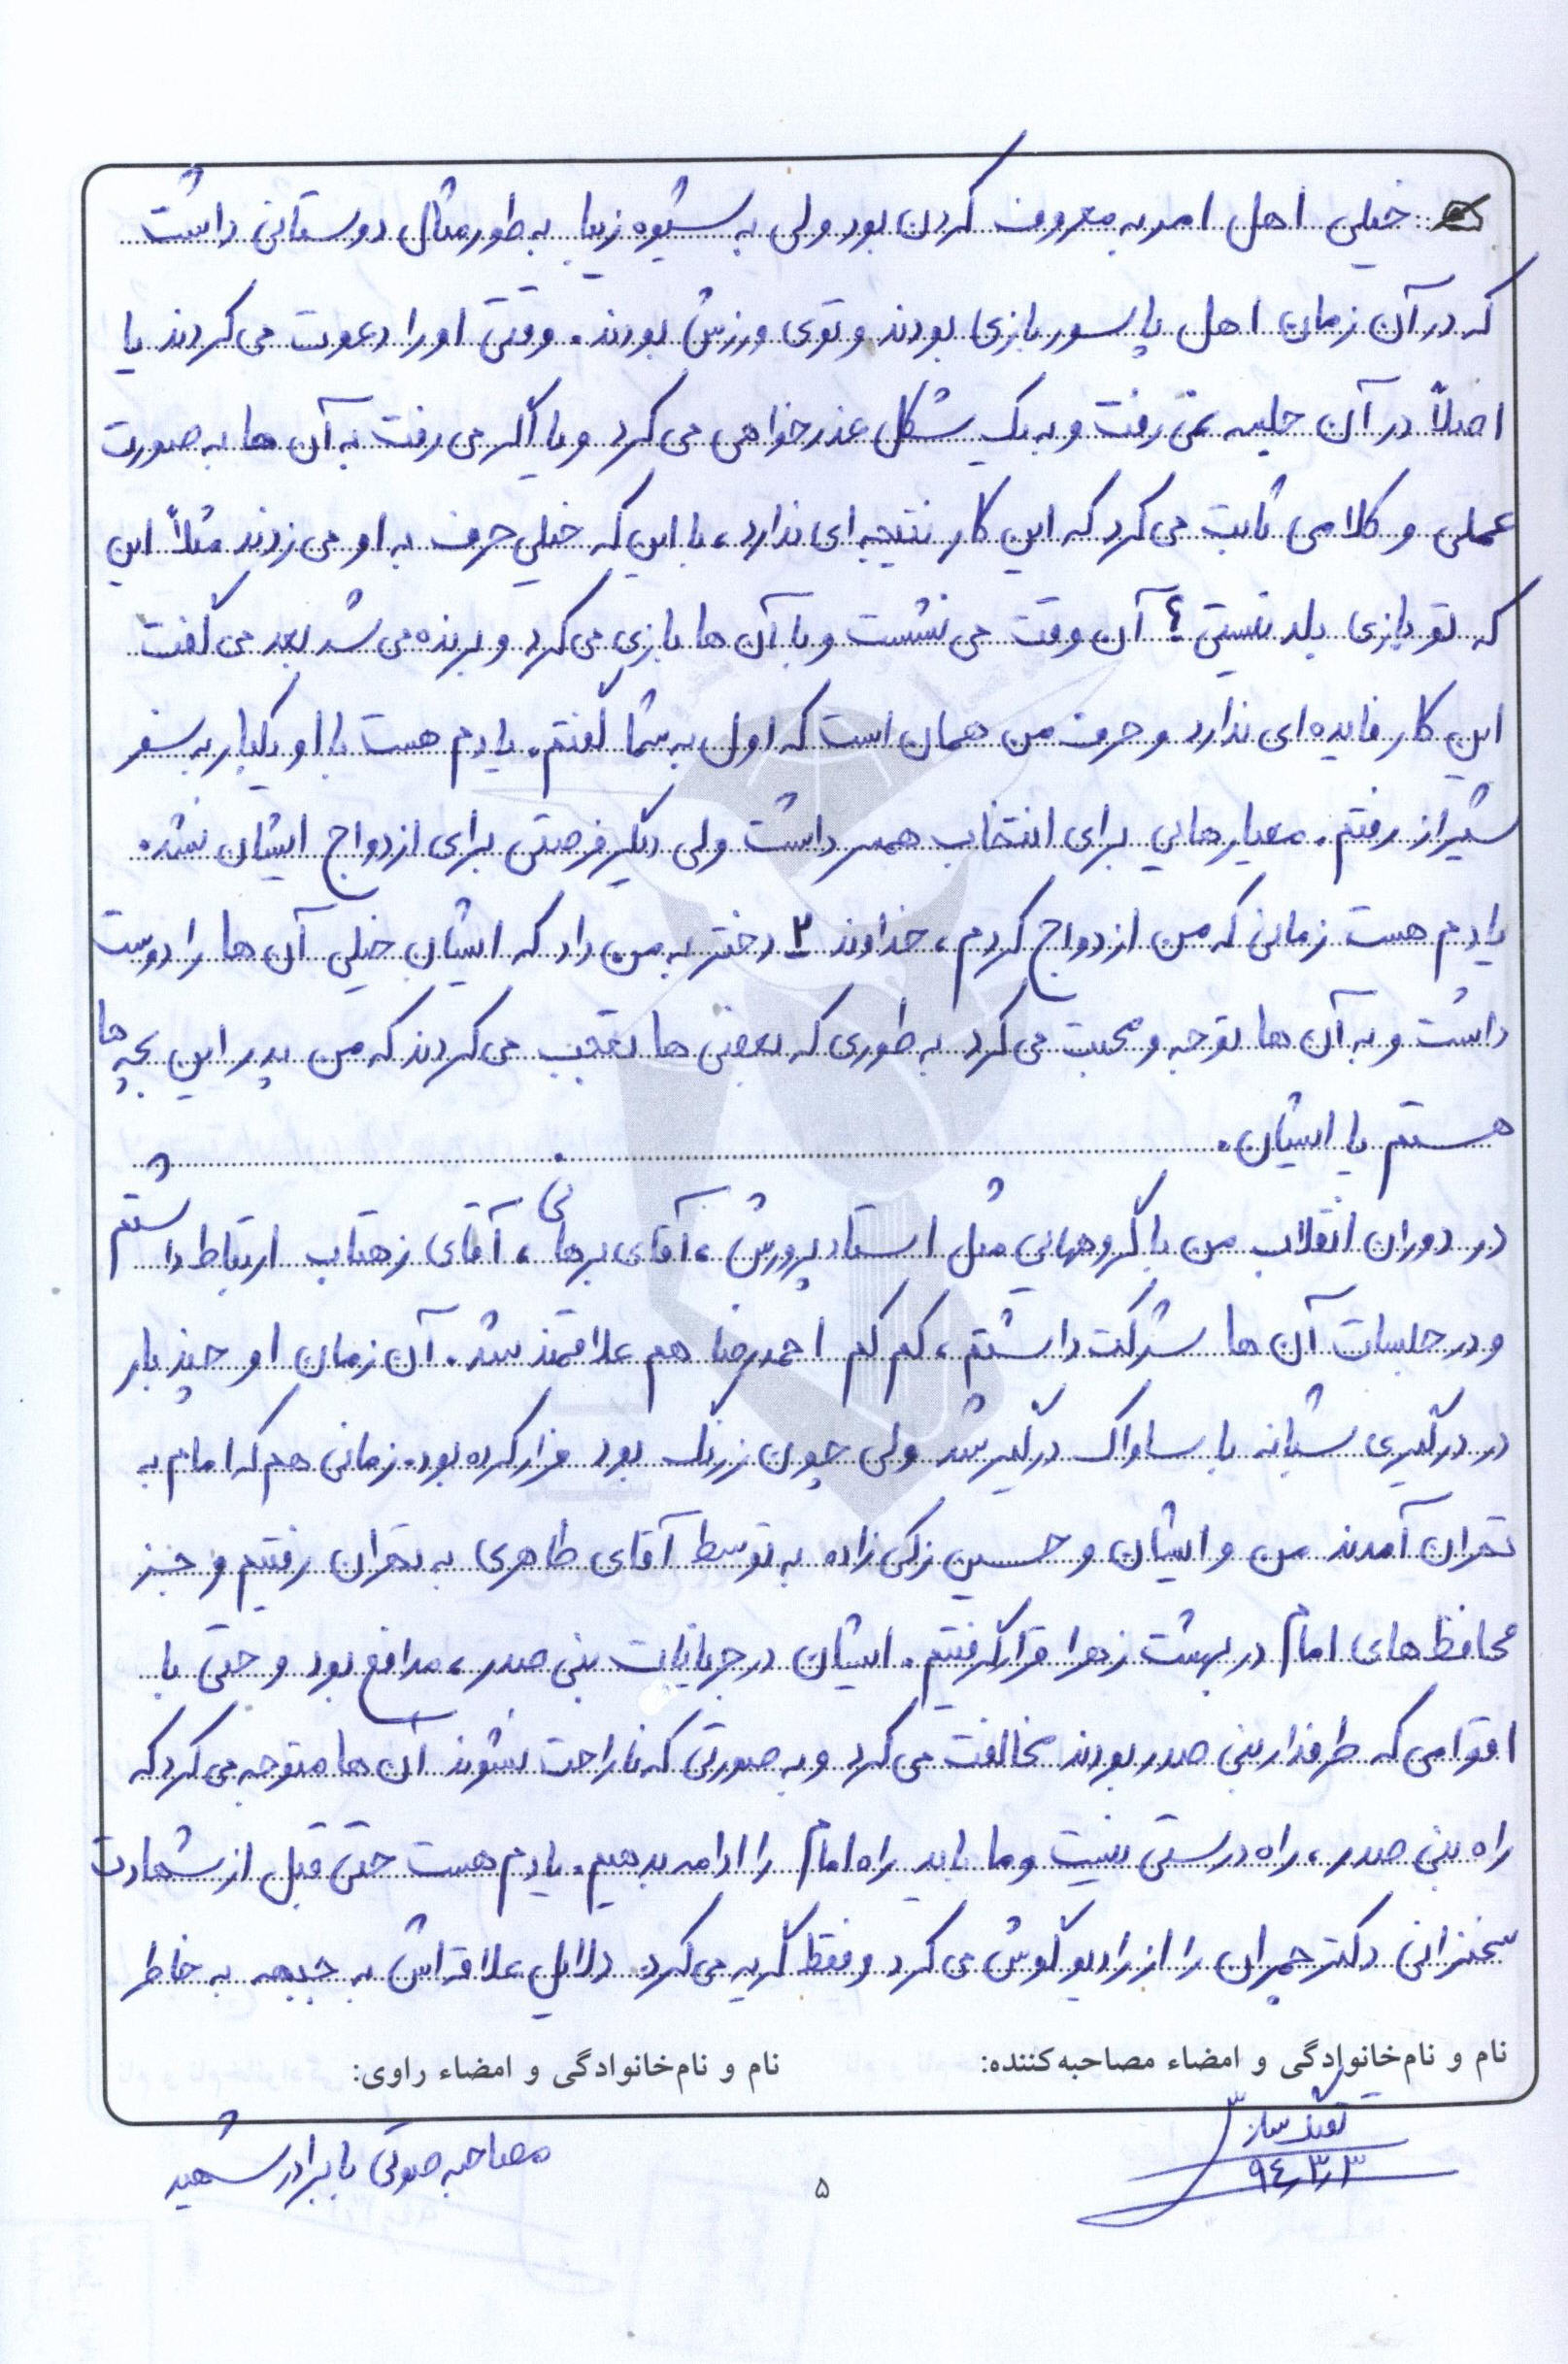 خیلی اهل امر به معروف کردن بود ولی به شیوه زیبا به طور مثال دوستانی داشت
که در آن زمان اهل پاسور بازی بودند و توی ورزش بودند. وقتی او را دعوت می کردند یا
اصلاً در آن جلسه نمی رفت و به یک شکل عذرخواهی می کرد و یا اگر می رفت به آن ها به صورت
عملی و کلامی ثابت می کرد که این کار نتیجه ای ندارد، با این که خیلی حرف به او می زدند مثلاً این
که تو بازی بلد نیستی؟ آن وقت می نشست و با آن ها بازی می کرد و برنده می شد بعد می گفت
این کار فایده ای ندارد و حرف من همان است که اول به شما گفتم. یادم هست با او یکبار به سفر
شیراز رفتم. معیارهایی برای انتخاب همسر داشت ولی دیگر فرصتی برای ازدواج ایشان نشد.
یادم هست زمانی که من ازدواج کردم، خداوند ۲ دختر به من داد که ایشان خیلی آن ها را دوست
داشت و به آن ها توجه و محبت می کرد به طوری که بعضی ها تعجب می کردند که من پدر این بچه ها
هستم یا ایشان.
در دوران انقلاب من با گروههایی مثل استاد پرورش، آقای برهانی، آقای زهتاب ارتباط داشتم
و در جلسات آن ها شرکت داشتم، کم کم احمدرضا هم علاقمند شد. آن زمان او چند بار
در درگیری شبانه با ساواک درگیر شد ولی چون زرنگ بود فرار کرده بود. زمانی هم که امام به
تهران آمدند من و ایشان و حسین زکی زاده به توسط آقای طاهری به تهران رفتیم و جزء
محافظ های امام در بهشت زهرا قرار گرفتیم. ایشان در جریانات بنی صدر، مدافع بود و حتی با
اقوامی که طرفدار بنی صدر بودند مخالفت می کرد و به صورتی که ناراحت نشوند آن ها متوجه می کرد که
راه بنی صدر، راه درستی نیست و ما باید راه امام را ادامه بدهیم. یادم هست حتی قبل از شهادت
سخنرانی دکتر چمران را از رادیو گوش می کرد و فقط گریه می کرد. دلایل علاقه اش به جبهه به خاطر
نام و نام‌خانوادگی و امضاء مصاحبه‌کننده:
نام و نام‌خانوادگی و امضاء راوی:
۹٤٫۳٫۳
مصاحبه صوتی با برادر شهید
۵